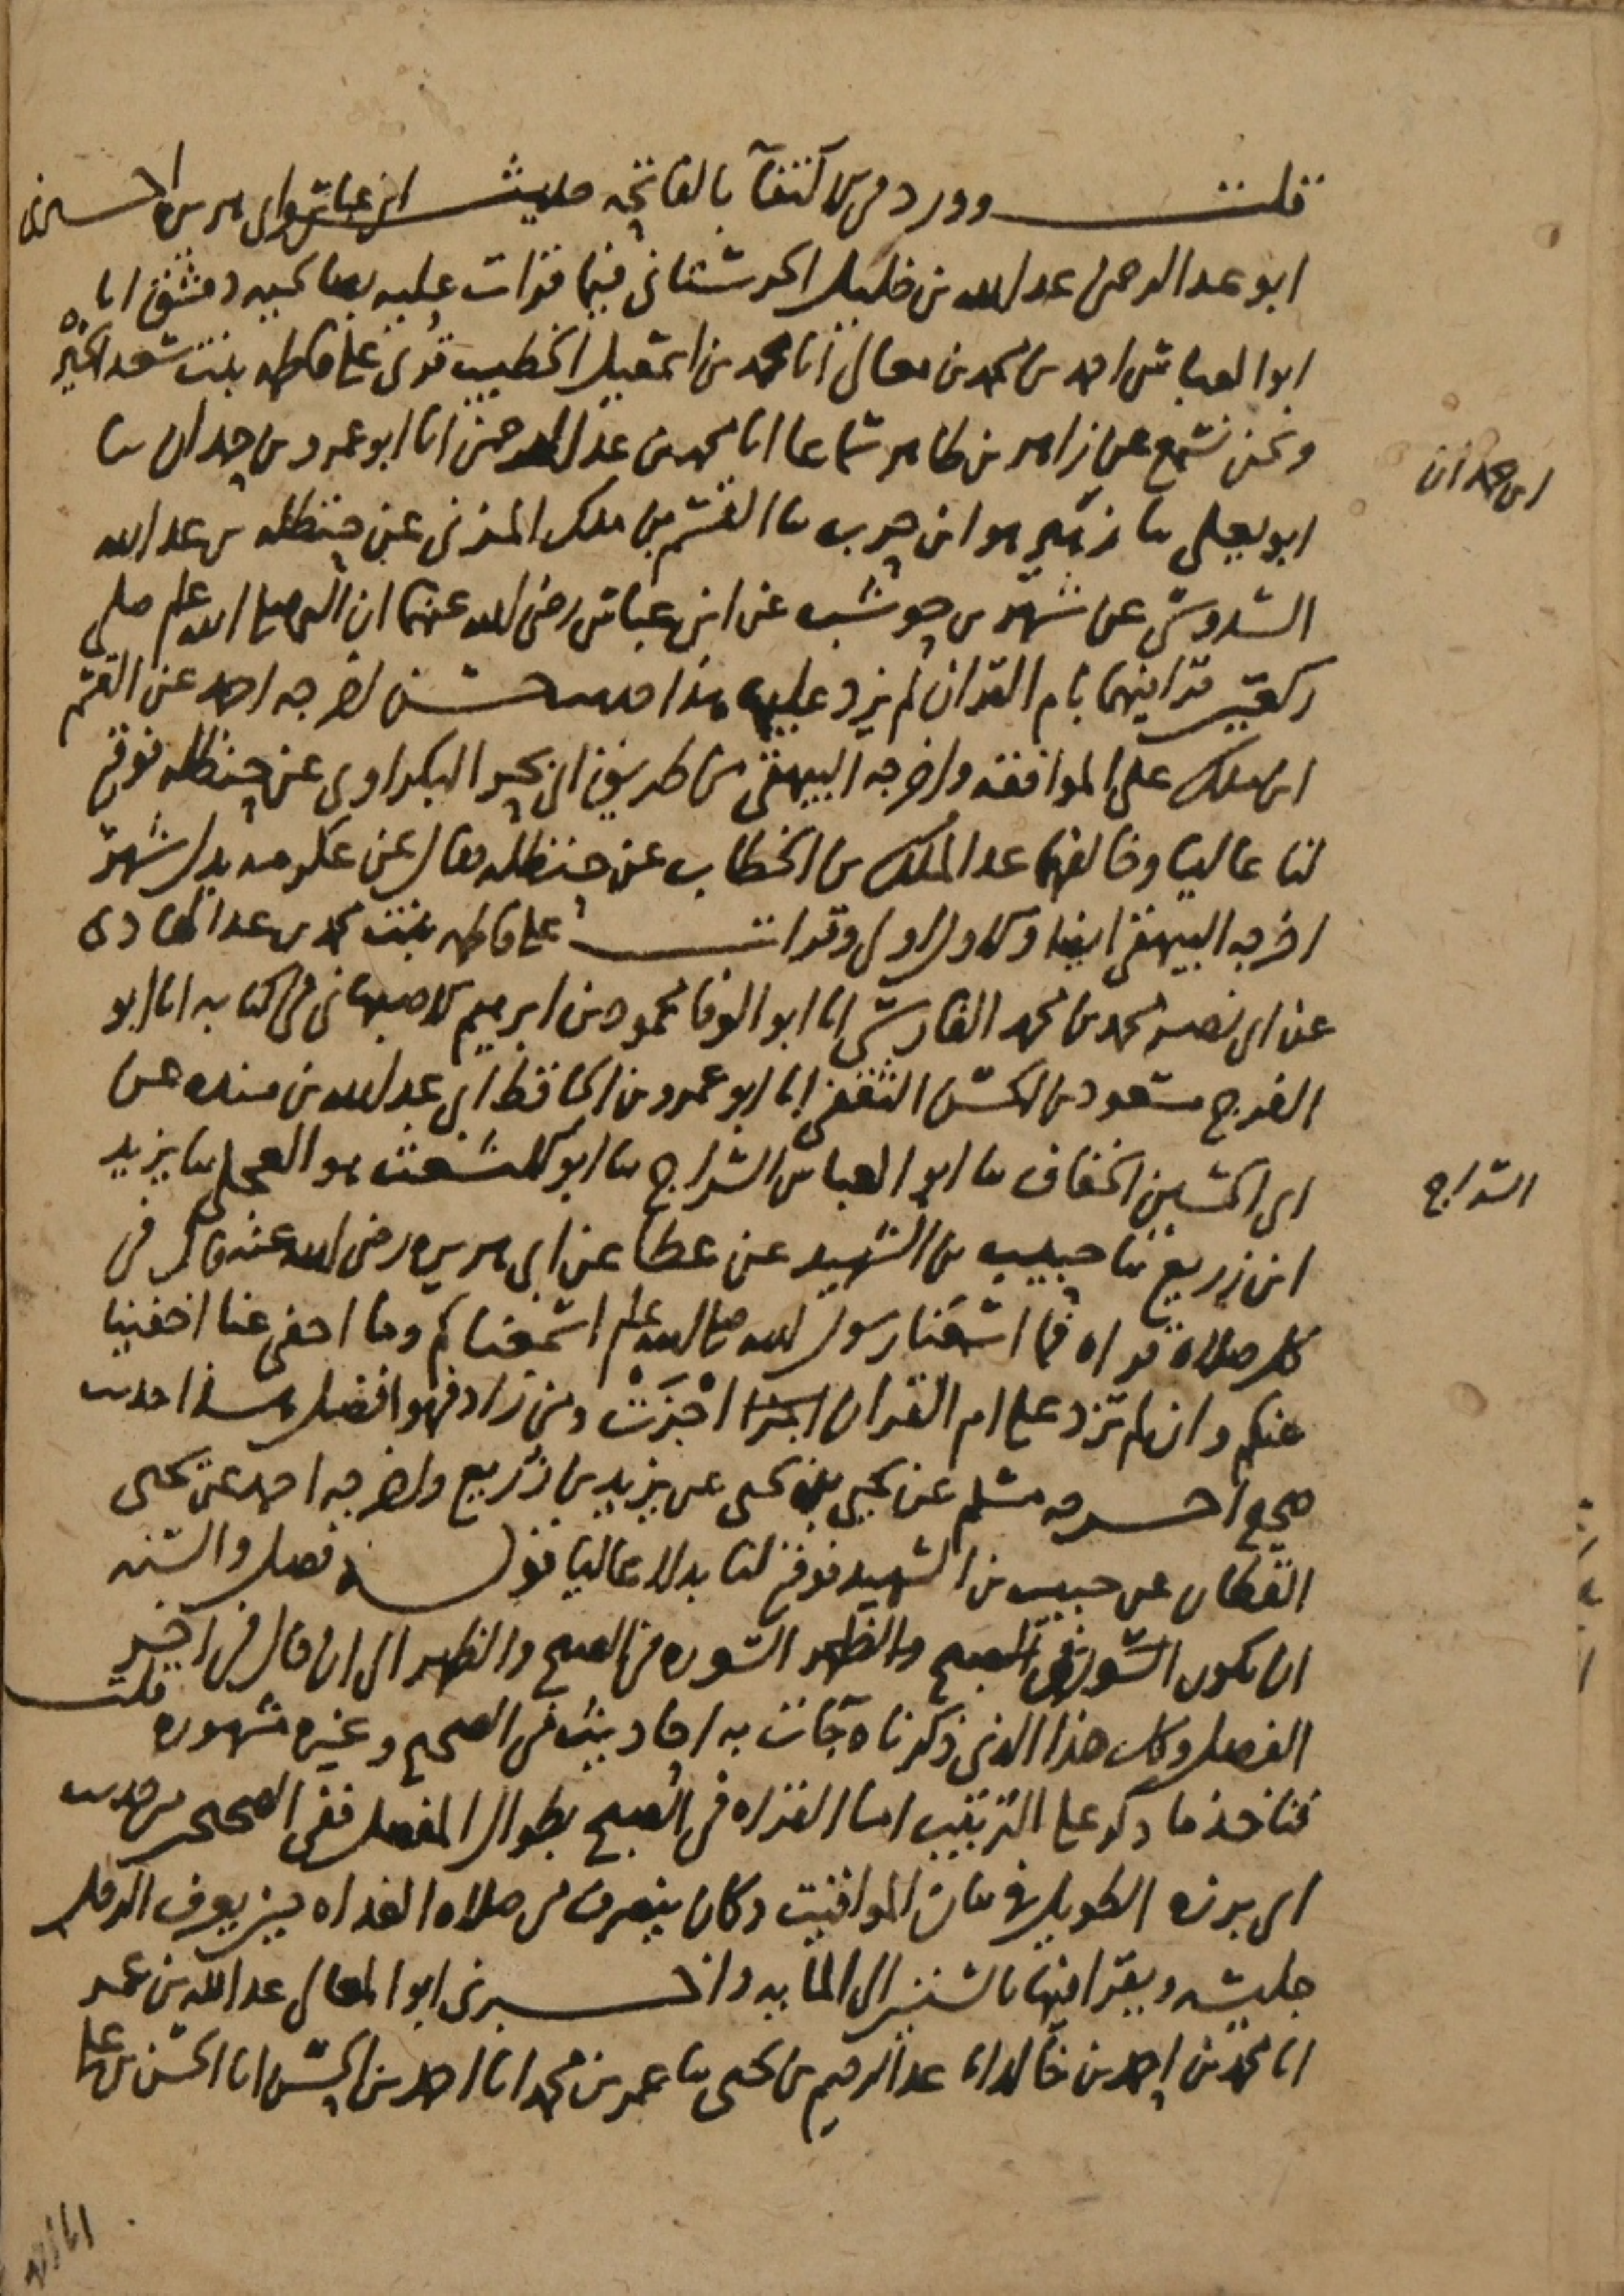 قلت وورد في الاكتفآ بالفاتحه حديث ابن عباس وابي هريره اخبرني
ابو عبد الرحمن عبد الله بن خليل الحرستاني فيما قرات عليه بصالحيه دمشق انا
ابو العباس احمد بن محمد بن معالي انا محمد بن اسمعيل الخطيب قرئ على فاطمه بنت سعد الخير
ونحن نسمع عن زاهر بن طاهر سماعا انا محمد بن عبد الرحمن انا ابو عمرو بن حمدان ثنا
ابن حمدان
ابو يعلى ثنا زهير هو ابن حرب ثنا القسم بن ملك المزني عن حنظله بن عبد الله
السدوسي عن شهر بن حوشب عن ابن عباس رضي الله عنهما ان النبي صلى الله علم صلى
ركعتين قرا فيهما بام القران لم يزد عليها هذا حديث حسن اخرجه احمد عن القسم
ابن ملك على الموافقه واخرجه البيهقي من طريق ابي بحر البكراوي عن حنظله فوقع
لنا عاليا وخالفهما عبد الملك بن الخطاب عن حنظله فقال عن عكرمه بدل شهر
اخرجه البيهقي ايضا والاول اولى وقرات على فاطمه بنت محمد بن عبد الهادي
عن ابي نصر محمد بن محمد الفارسي انا ابو الوفا محمود بن ابرهيم الاصبهاني في كتابه انا ابو
الفرج مسعود بن الحسن الثقفي انا ابو عمرو بن الحافظ ابي عبد الله بن منده عن
ابي الحسين الخفاف ثنا ابو العباس السراج ثنا ابو الاشعث هو العجلي ثنا يزيد
السراج
ابن زريع ثنا حبيب بن الشهيد عن عطا عن ابي هريره رضي الله عنه قال في
كل صلاه قراه فما اسمعنا رسول الله صلى الله علم اسمعناكم وما اخفى عنا اخفينا
عنكم وان لم تزد على ام القران اجزات اجْزَتْ ومن زاد فهو افضل هذا حديث
صحيح اخرجه مسلم عن يحيى بن يحيى عن يزيد بن زريع واخرجه احمد عن يحيى
القطان عن حبيب بن الشهيد فوقع لنا بدلا عاليا قوله فصل والسنه
ان تكون السوره في الصبح والظهر السوره في الصبح والظهر الى ان قال في اخر
الفصل وكل هذا الذي ذكرناه جآت به احاديث في الصحيح وغيره مشهوره قلت
فناخذ ما ذكر على الترتيب اما القراه في الصبح بطوال المفصل ففي الصحيحين من حديث
ابي برزه الطويل في بيان المواقيت وكان ينصرف من صلاه الغداه حين يعرف الرجل
جليسه ويقرا فيها بالستين الى المايه واخبرني ابو المعالي عبد الله بن عمر
انا محمد بن احمد بن خالد انا عبد الرحيم بن يحيى ثنا عمر بن محمد انا احمد بن الحسن انا الحسن بن علي